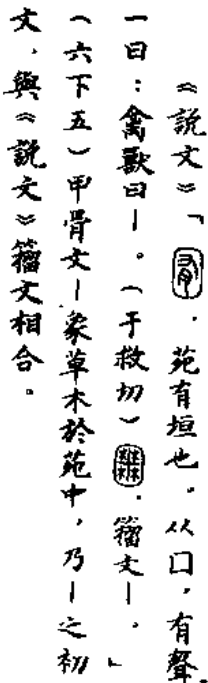 《說文》「囿，苑有垣也。从囗，有聲。
一曰：禽獸曰｜。（于救切）𡈲，籀文｜。」
（六下五）甲骨文｜象草木於苑中，乃｜之初
文，與《說文》籀文相合。